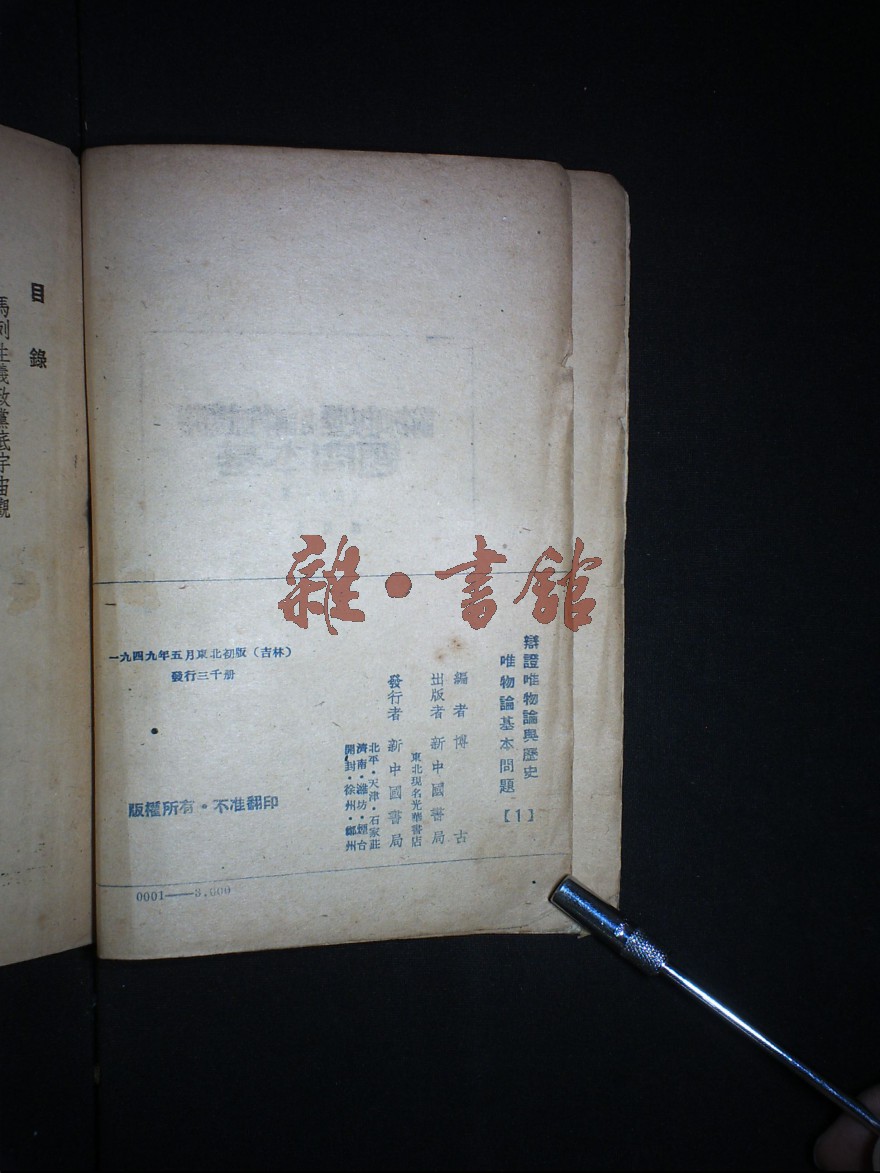 辯證唯物論與歷史
唯物論基本問題
【1】
編者 博古
出版者 新中國書局
東北現名光華書店
發行者 新中國書局
北平·天津·石家莊
濟南·濰坊·煙台
開封·徐州·鄭州
一九四九年五月東北初版(吉林)
發行三千册
版權所有·不准翻印
0001——3.000
目錄
馬列主義政黨底宇宙觀
雜·書館